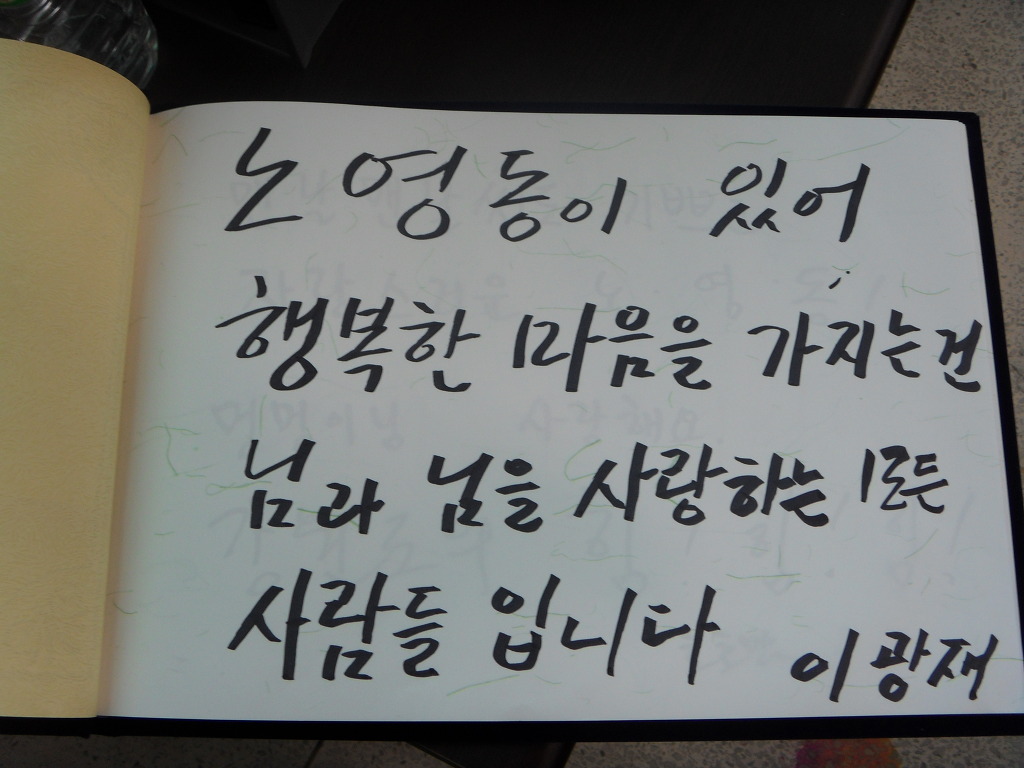 노영동이 있어
행복한 마음을 가지는건
님과 님을 사랑하는 모든
사람들 입니다
이광재